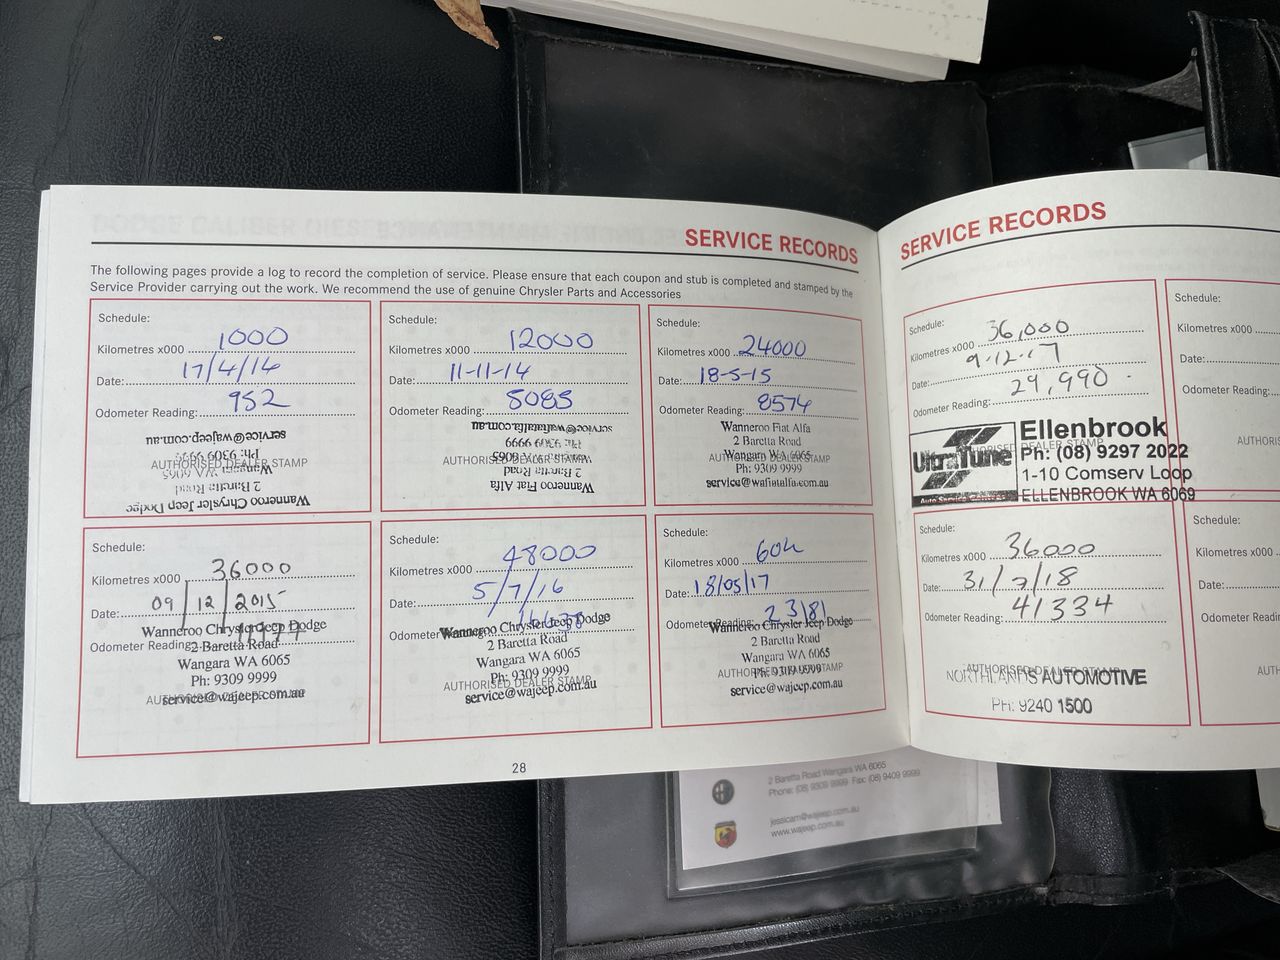 SERVICE RECORDS
The following pages provide a log to record the completion of service. Please ensure that each coupon and stub is completed and stamped by the
Service Provider carrying out the work. We recommend the use of genuine Chrysler Parts and Accessories
Schedule:
Kilometres x000 1000
Date: 17/4/14
Odometer Reading: 952
AUTHORISED DEALER STAMP
Wanneroo Chrysler Jeep Dodge
2 Baretta Road
Wangara WA 6065
Ph: 9309 9999
service@wajeep.com.au
Schedule:
Kilometres x000 12000
Date: 11-11-14
Odometer Reading: 5085
AUTHORISED DEALER STAMP
Wanneroo Fiat Alfa
2 Baretta Road
Wangara WA 6065
Ph: 9309 9999
service@wafiatalfa.com.au
Schedule:
Kilometres x000 24000
Date: 18-5-15
Odometer Reading: 8574
AUTHORISED DEALER STAMP
Wanneroo Fiat Alfa
2 Baretta Road
Wangara WA 6065
Ph: 9309 9999
service@wafiatalfa.com.au
Schedule:
Kilometres x000 36000
Date: 09/12/2015
Odometer Reading:
Wanneroo Chrysler Jeep Dodge
2 Baretta Road
Wangara WA 6065
Ph: 9309 9999
AUTHORISED DEALER STAMP
service@wajeep.com.au
Schedule:
Kilometres x000 48000
Date: 5/7/16
Odometer
Wanneroo Chrysler Jeep Dodge
2 Baretta Road
Wangara WA 6065
Ph: 9309 9999
AUTHORISED DEALER STAMP
service@wajeep.com.au
Schedule:
Kilometres x000 60k
Date: 18/05/17
Odometer Reading: 23181
Wanneroo Chrysler Jeep Dodge
2 Baretta Road
Wangara WA 6065
AUTHORISED DEALER STAMP
Ph: 9309 9999
service@wajeep.com.au
28
SERVICE RECORDS
Schedule:
Kilometres x000 36,000
Date: 9.12.17
Odometer Reading: 29,990
AUTHORISED DEALER STAMP
Ultra Tune
Ellenbrook
Ph: (08) 9297 2022
1-10 Comserv Loop
ELLENBROOK WA 6069
Schedule:
Kilometres x000 36000
Date: 31/7/18
Odometer Reading: 41334
AUTHORISED DEALER STAMP
NORTHLANDS AUTOMOTIVE
PH: 9240 1500
Schedule:
Kilometres x000
Date:
Odometer Reading:
AUTHORIS
Schedule:
Kilometres x000
Date:
Odometer Readin
AUTH
2 Baretta Road Wangara WA 6065
Phone: (08) 9309 9999 Fax: (08) 9409 9999
jessicam@wajeep.com.au
www.wajeep.com.au